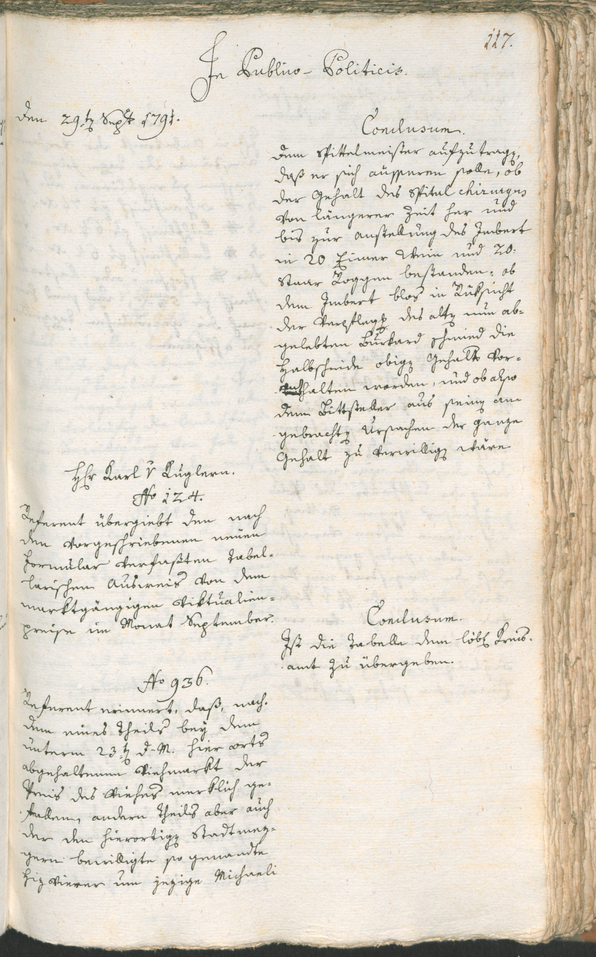 117.
In Publico-Politicis.
den 29.ten Septr 1791.
Conclusum.
dem Spittelmeister aufzutragen,
daß er sich äusseren solle, ob
der Gehalt des Spital chirurgus
von längerer Zeit her und
bis zur anstellung des Imbert
in 20 Eimer Wein und 20.
Staar Roggen bestanden: ob
dem Imbert blos in Rüksicht
der Verpflegg des alten nun ab-
gelebten Burkard Schmied die
Halbscheide obigen Gehalts vor-
enthalten worden, und ob also
dem Bittsteller aus seinen an-
gebrachten Ursachen der ganze
Gehalt zu verwilligen wäre
Hr Karl v Kuglern.
No 124.
Referent übergiebt den nach
den vorgeschriebenen neuen
Formular verfaßten Tabel-
larischen Ausweis von dem
marktgängigen Viktualien-
preise im Monat September.
Conclusum.
Ist die Tabelle dem löbl Kreis-
amt zu übergeben.
No 936.
Referent erinnert, daß, nach-
dem eines Theils bey dem
unterm 23.ten d. M. hier orts
abgehaltenen Viehmarkt der
Preis des Viehes merklich ge-
fallen, andern Theils aber auch
der den hierortigen Stadtmez-
gern bewilligte so genandte
Hizvierer um jezige Michaeli